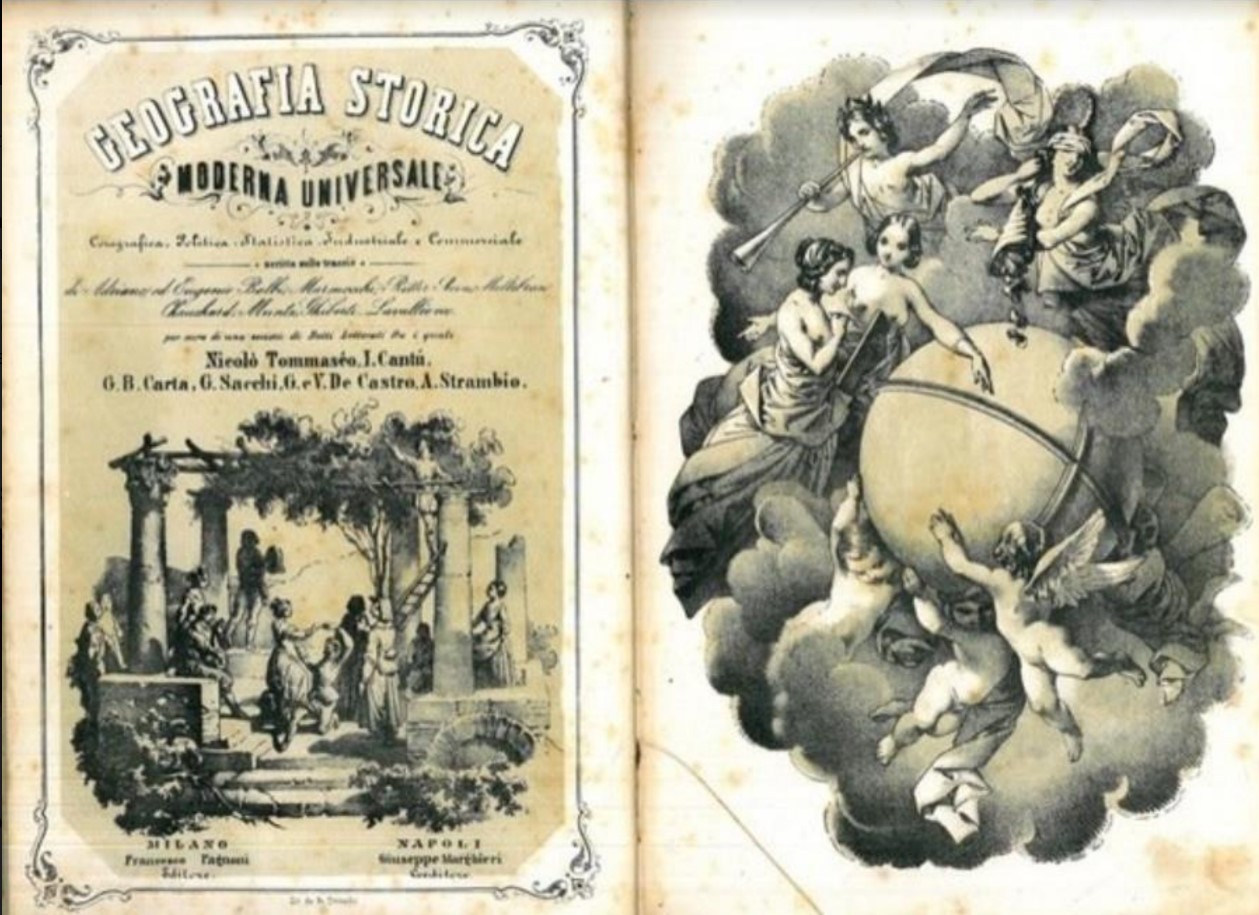 GEOGRAFIA STORICA
MODERNA UNIVERSALE
Corografica, Politica, Statistica, Industriale e Commerciale
scritta sulle traccie
di Adriano ed Eugenio Balbi, Marmocchi, Ritter,
Muntz, Ghiberti, Lavallée
per cura di una società di Dotti Letterati fra i quali
Nicolò Tommaséo, I. Cantú,
G. B. Carta, G. Sacchi, G. e V. De Castro, A. Strambio.
MILANO
Francesco Pagnoni
Editore.
NAPOLI
Giuseppe Marghieri